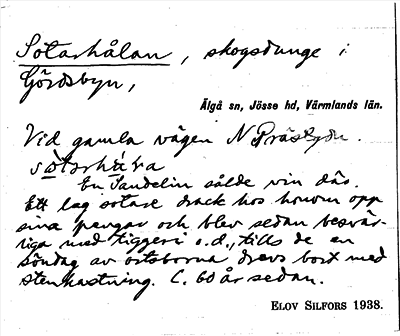 Sotarhålan, skogsdunge i
Gördsbyn,
Älgå sn, Jösse hd, Värmlands län.
Vid gamla vägen N Prästbyn.
En Sandelin sålde vin där.
Ett lag sotare drack hos honom opp
sina pengar och blev sedan besvär-
liga med tiggeri o.d., tills de en
söndag av ortsborna drevs bort med
stenkastning. C. 60 år sedan.
ELOV SILFORS 1938.